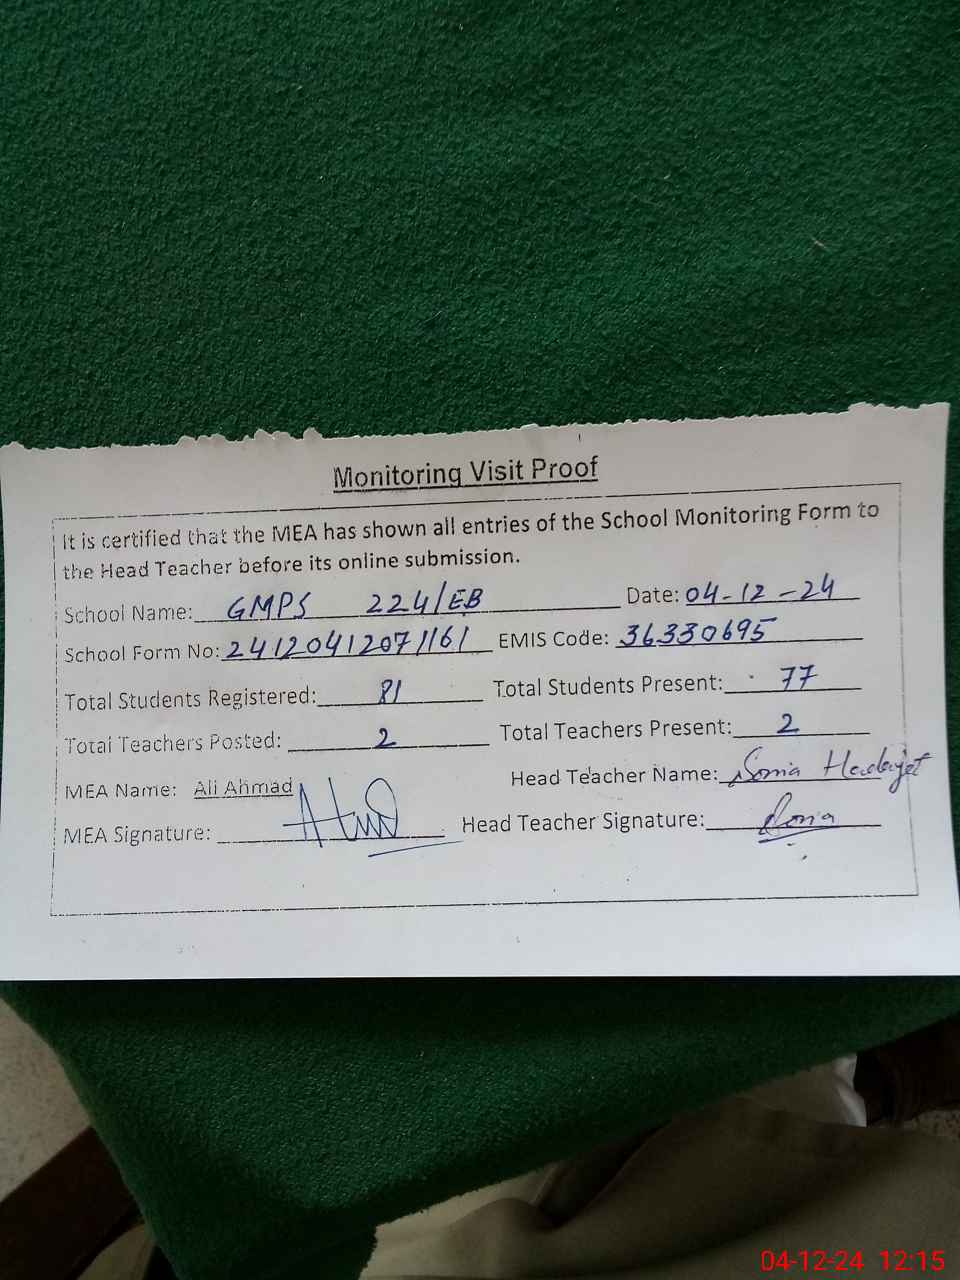 Monitoring Visit Proof
It is certified that the MEA has shown all entries of the School Monitoring Form to
the Head Teacher before its online submission.
School Name: GMPS 224/EB Date: 04-12-24
School Form No: 24120412071161 EMIS Code: 36330695
Total Students Registered: 81 Total Students Present: 77
Total Teachers Posted: 2 Total Teachers Present: 2
MEA Name: Ali Ahmad Head Teacher Name: Sonia
MEA Signature: Head Teacher Signature: Sonia
04-12-24 12:15